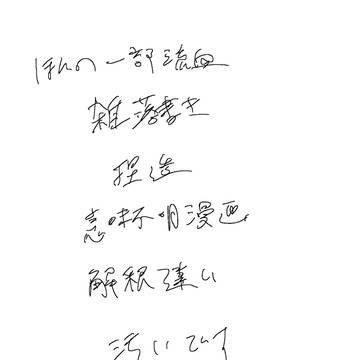 ほんの一部流血
雑落書き
捏造
意味不明漫画
解釈違い
汚いです